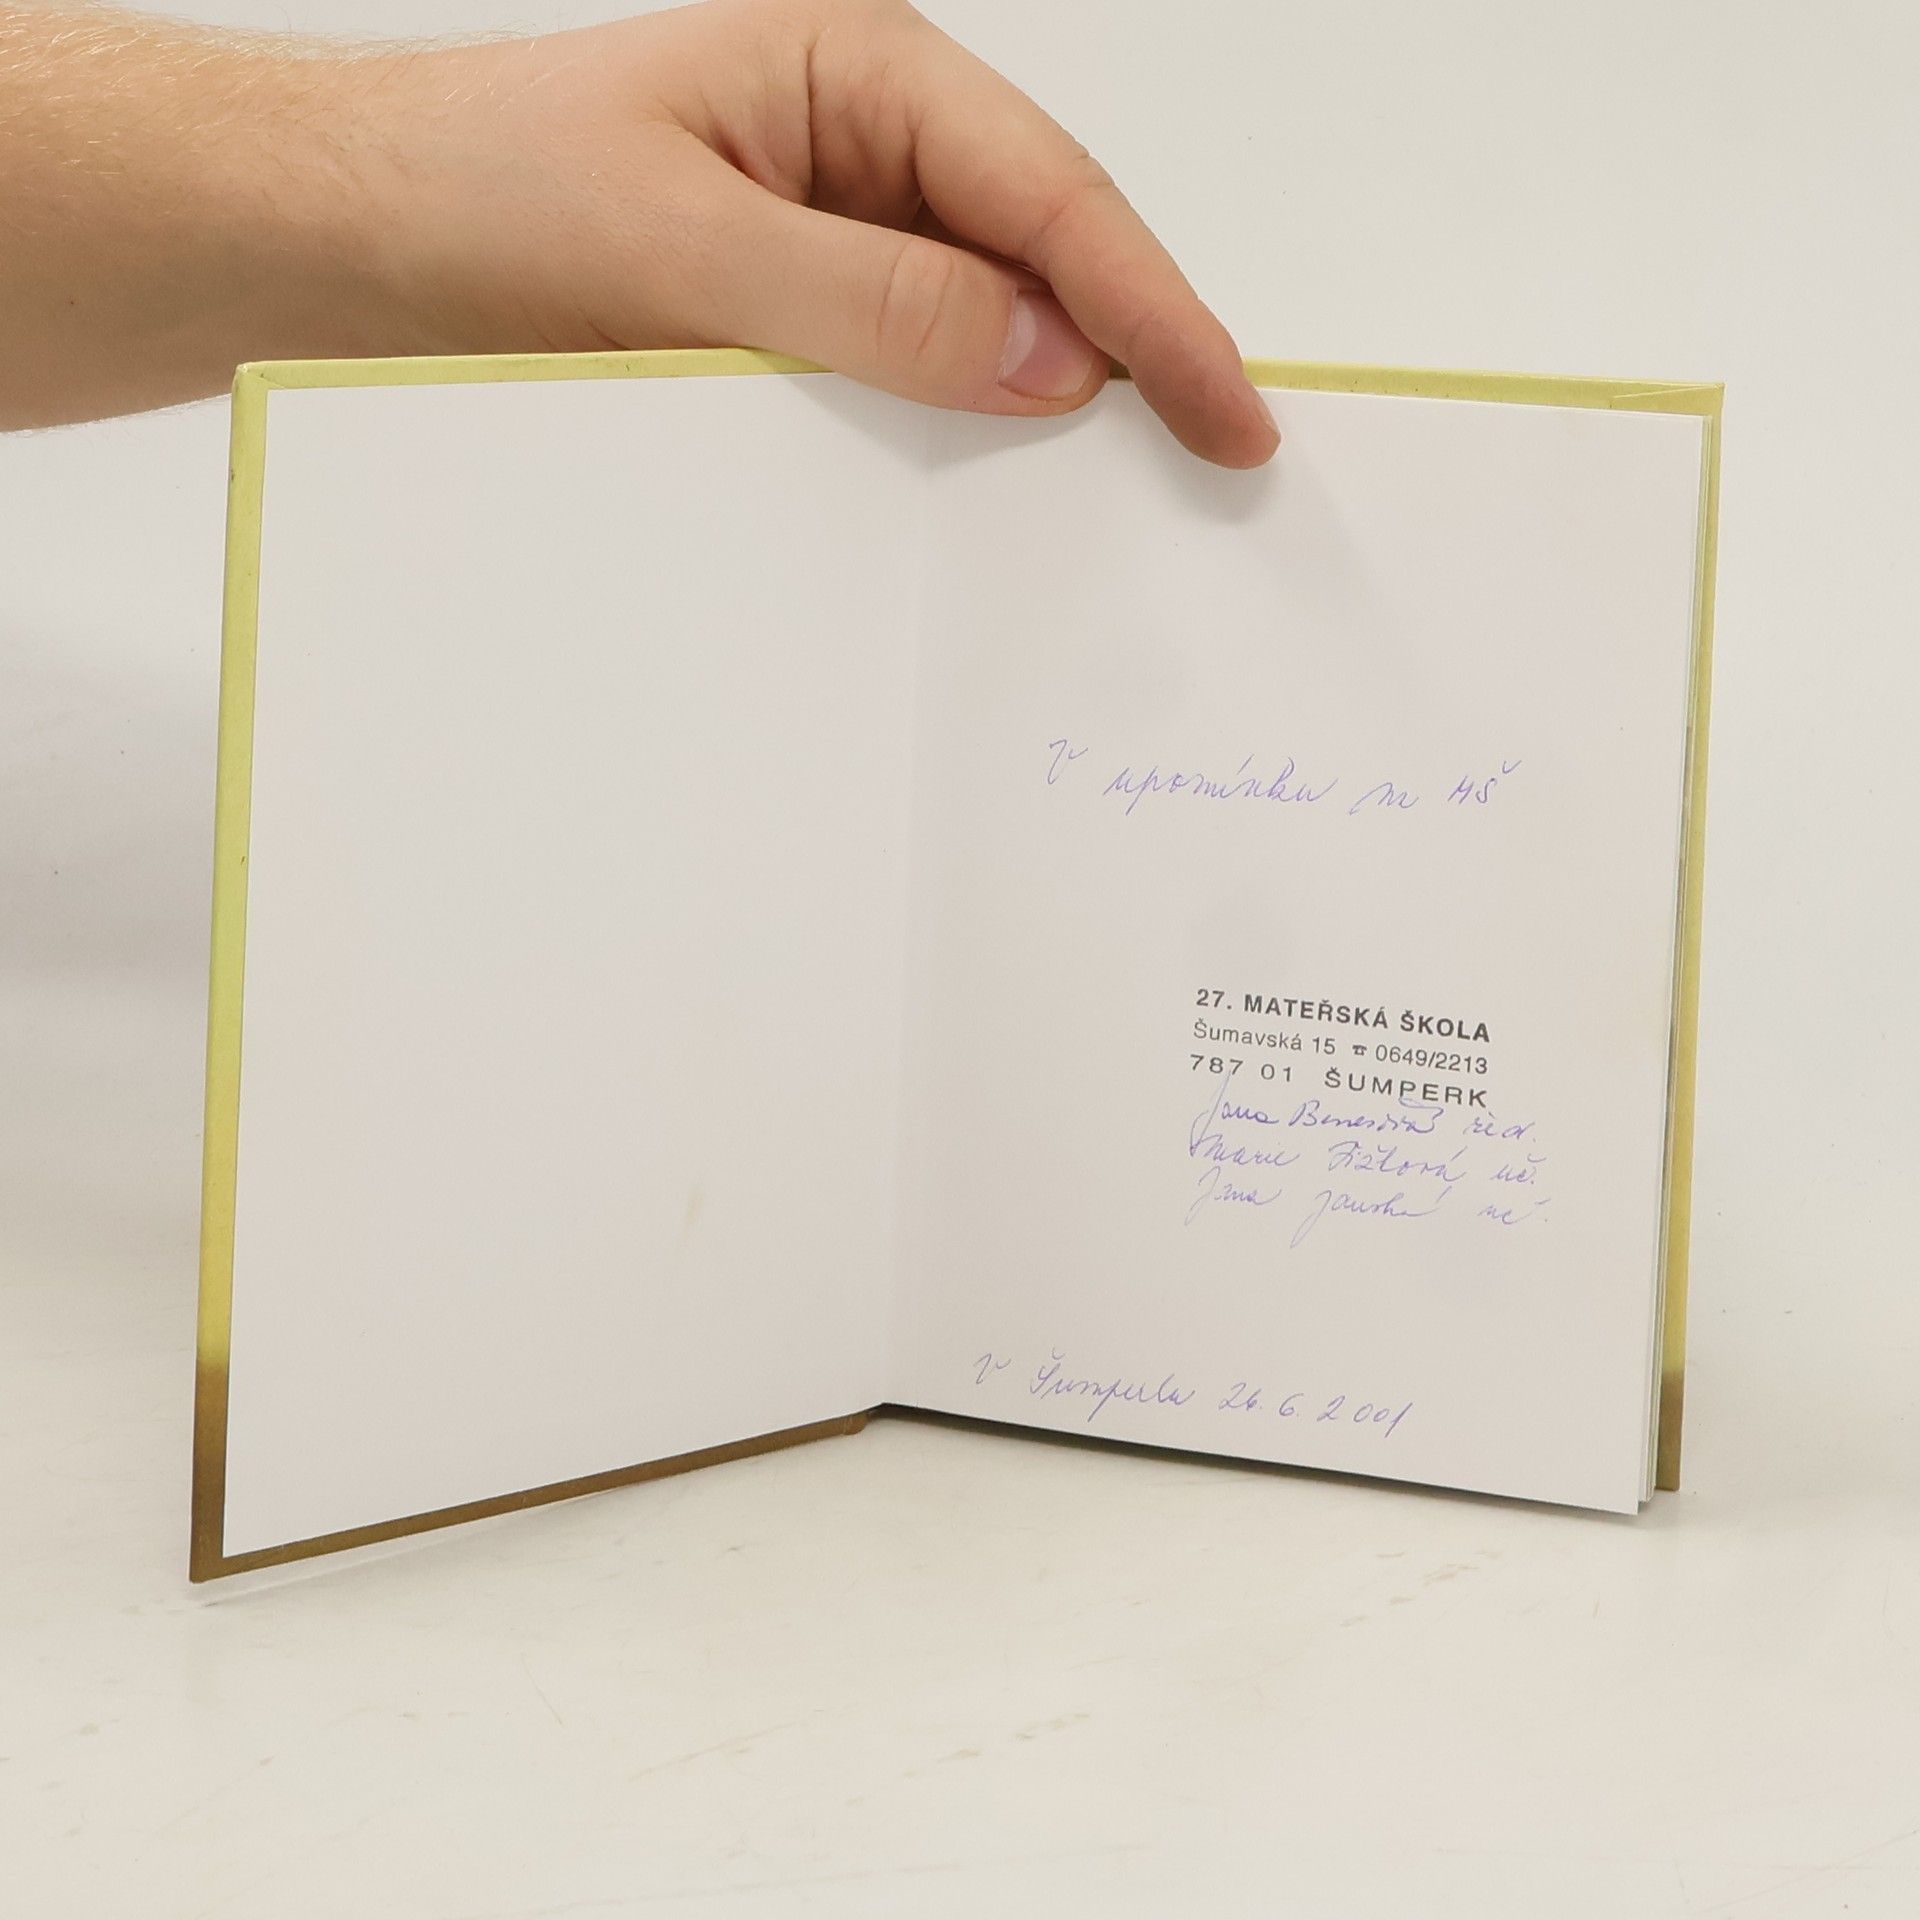 V upomínku na MŠ
27. MATEŘSKÁ ŠKOLA
Šumavská 15 ☎ 0649/2213
787 01 ŠUMPERK
Jana Benešová řed.
Marie Fištová uč.
Jana Janská uč.
V Šumperku 26. 6. 2001